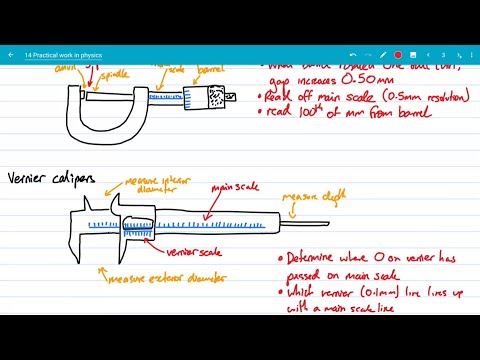 14 Practical work in physics
3
anvil
spindle
scale
barrel
gap increases 0.50mm
• Read off main scale (0.5mm resolution)
• read 100th of mm from barrel
Vernier calipers
measure interior
diameter
main scale
measure depth
vernier scale
measure exterior diameter
• Determine where 0 on vernier has
passed on main scale
• Which vernier (0.1mm) line lines up
with a main scale line